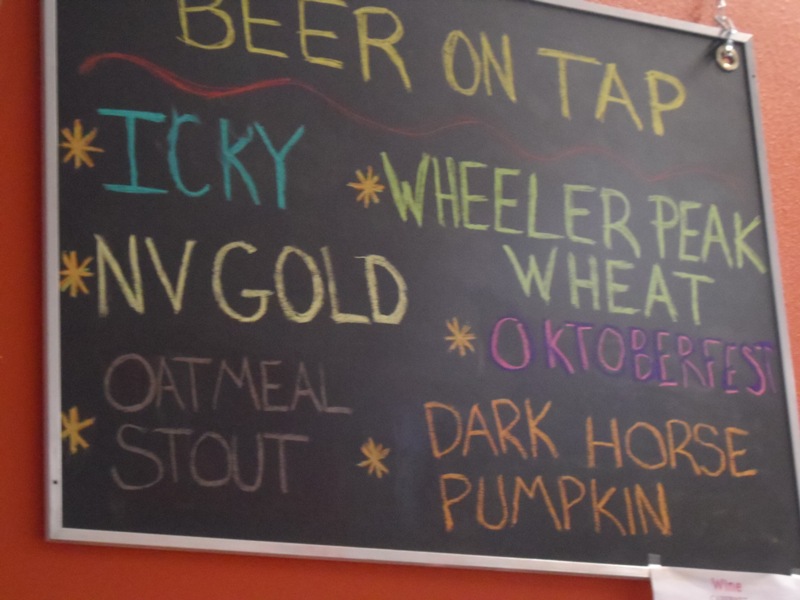 BEER ON TAP
ICKY
NV GOLD
OATMEAL
STOUT
WHEELER PEAK
WHEAT
OKTOBERFEST
DARK HORSE
PUMPKIN
Wine